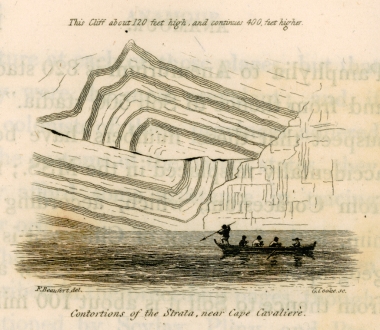 This Cliff about 120 feet high, and continues 400, feet higher.
F. Beaufort del.
G. Cooke sc.
Contortions of the Strata, near Cape Cavaliere.